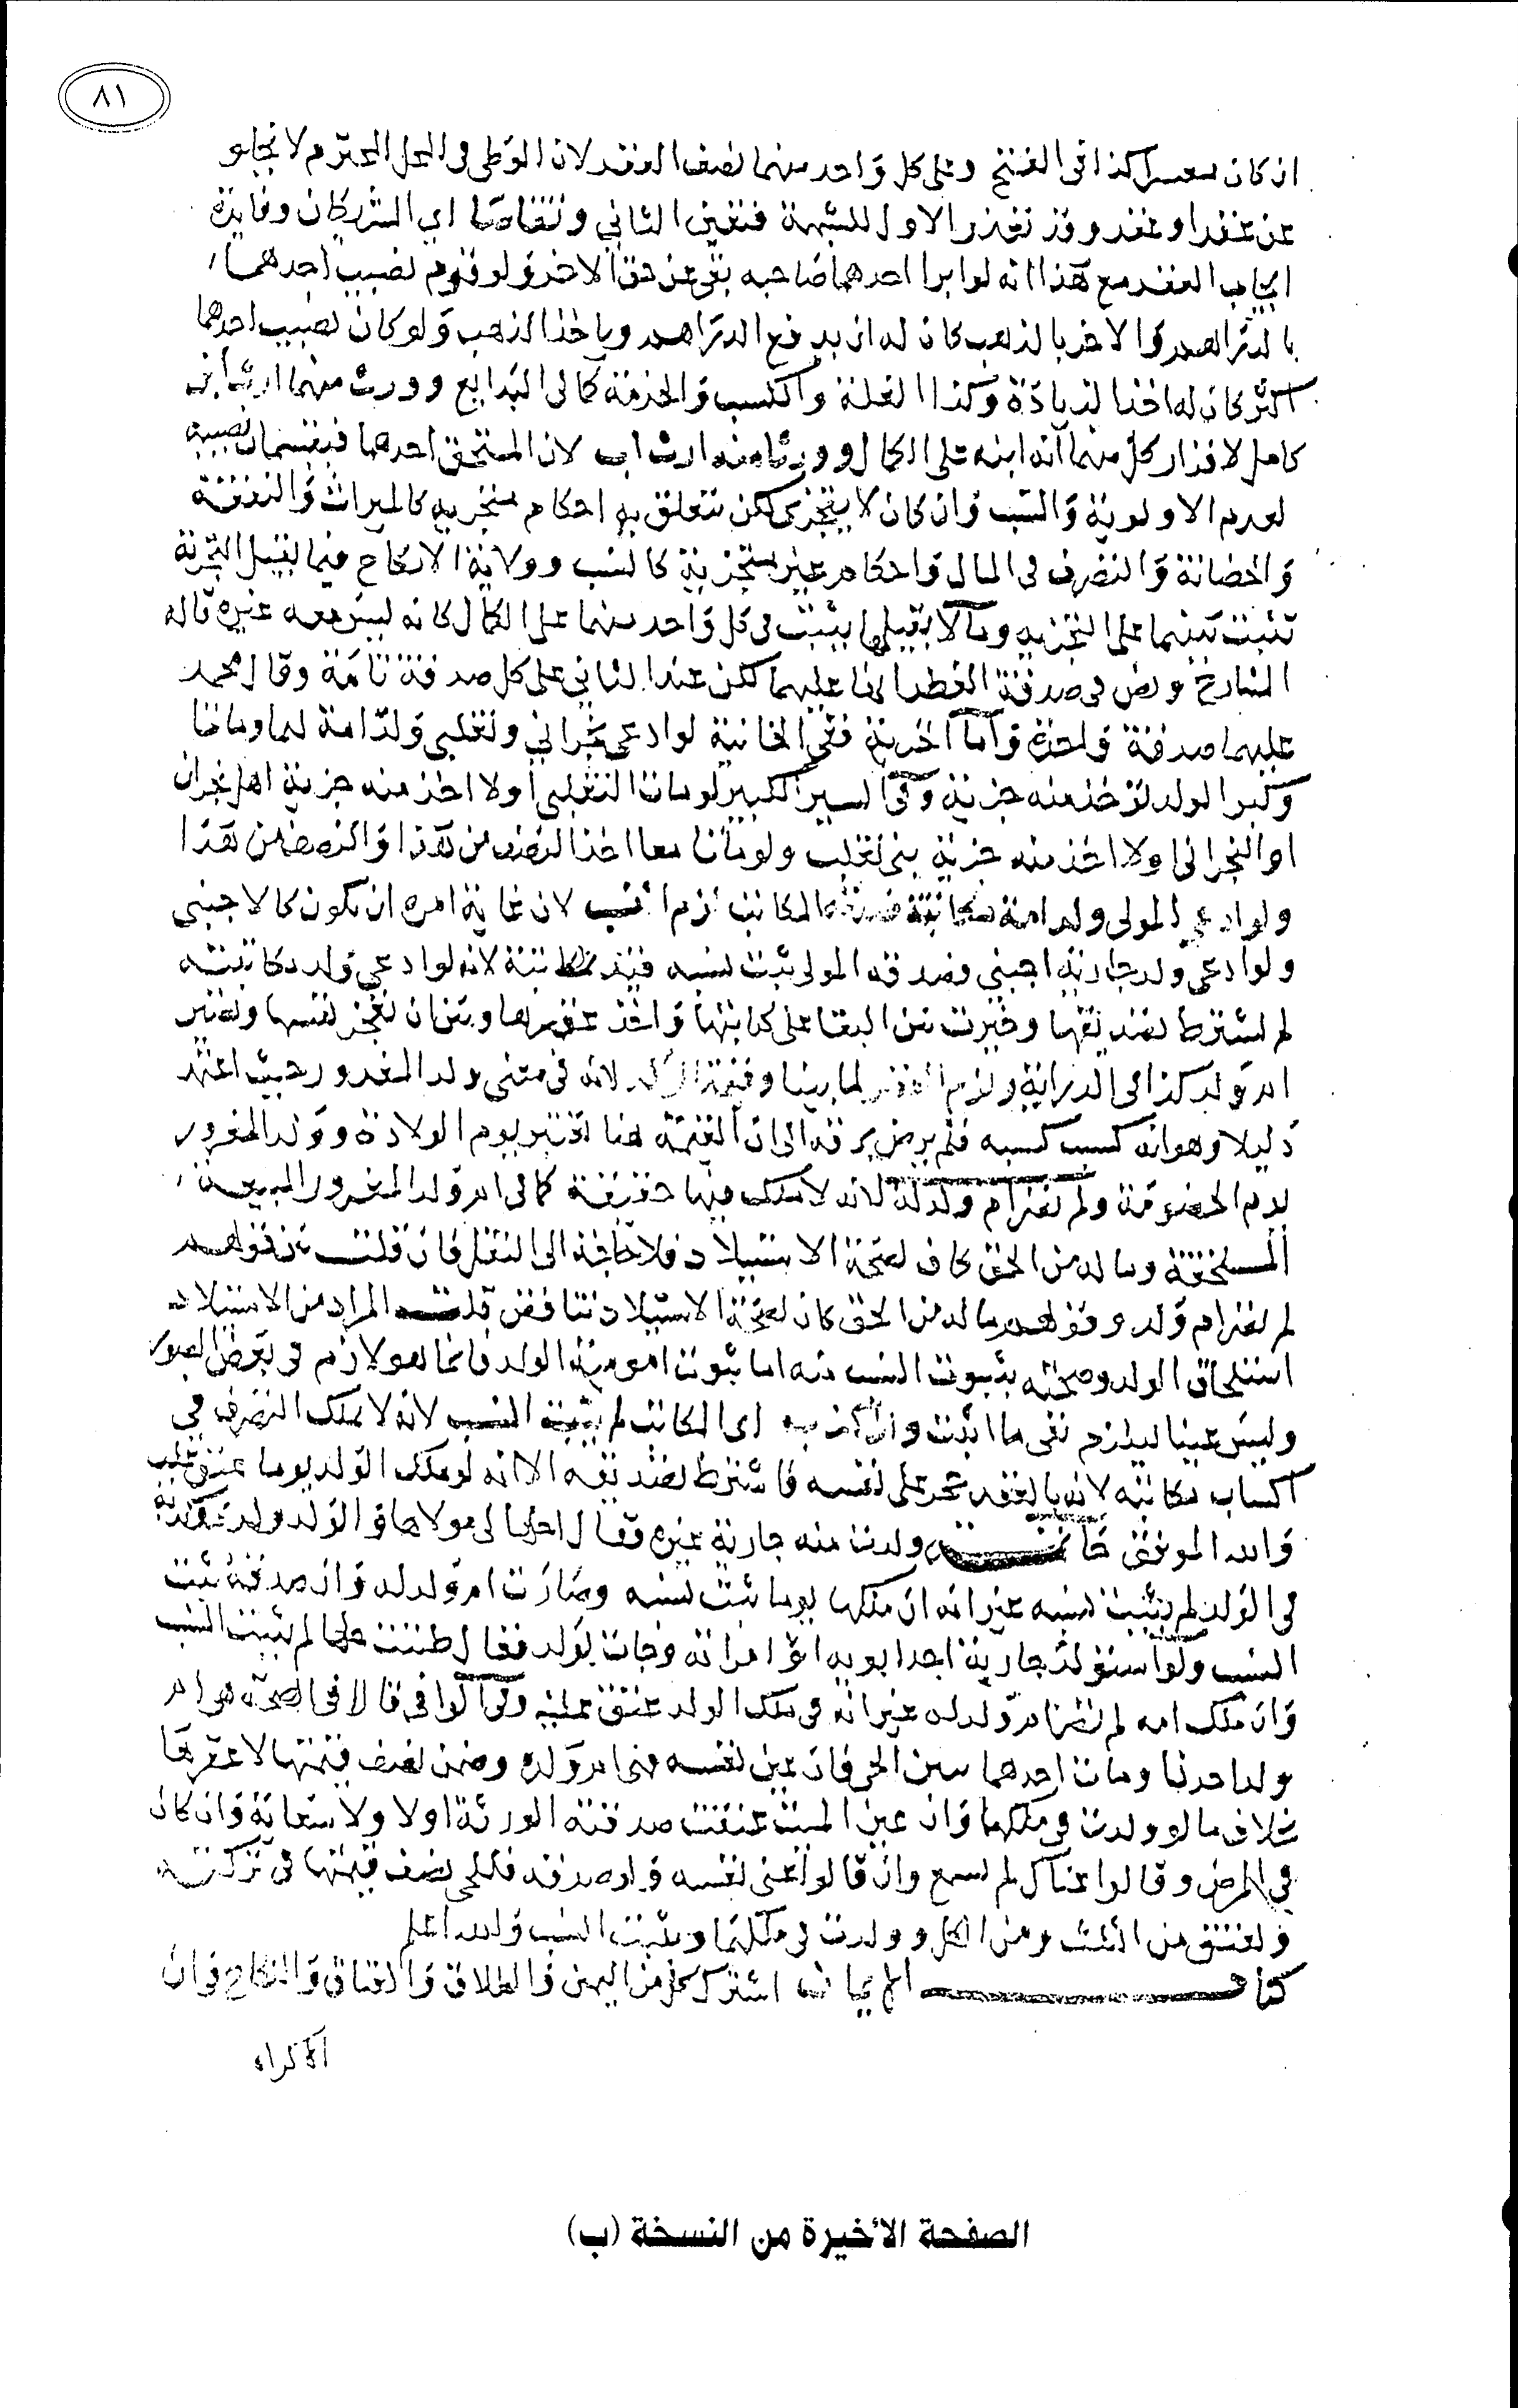 ٨١
ان كان معسرا كذا فى الفتح وعلى كل واحد منهما نصف العقر لان الوطى فى المحل المحترم لا يخلو
عن عقر او عقر وقد تعذر الاول للشبهة فتعين الثاني وتقاصا اي الشريكان وفايدة
ايجاب العقر مع هذا انه لو ابرا احدهما صاحبه بقى عن حق الاخر ولو قوم نصيب احدهما
بالدراهم والاخر بالذهب كان له ان يدفع الدراهم وياخذ الذهب ولو كان نصيب احدهما
اكثر كان له اخذ الزيادة وكذا الغلة والكسب والخدمة كما فى البدايع وورث منهما ارث ابن
كامل لاقرار كل منهما انه ابنه على الكمال وورثا منه ارث اب لان المستحق احدهما فيقتسمان نصيبه
لعدم الاولوية والنسب وان كان لا يتجزى لكن تتعلق به احكام متجزية كالميراث والنفقة
والحضانة والتصرف فى المال واحكام غير متجزية كالنسب وولاية الانكاح فيما يقبل التجزئة
تثبت بينهما على التجزيه وما لا يقبلها يثبت فى كل واحد منهما على الكمال كانه ليس معه غيره قاله
الشارح ونص فى صدقة الفطر انها عليهما لكن عند الثاني على كل صدقة تامة وقال محمد
عليهما صدقة واحدة واما الجزية ففى الخانية لو ادعى نجراني وتغلبى ولد امة لهما وماتا
وكبر الولد توخذ منه جزية وفى السير الكبير لو مات التغلبى اولا اخذ منه جزية اهل نجران
او النجرانى اولا اخذ منه جزية بنى تغلب ولو ماتا معا اخذ النصف من هذا والنصف من هذا
ولو ادعى المولى ولد امة مكاتبه وصدقه المكاتب لزم النسب لان غاية امره ان يكون كالاجنبى
ولو ادعى ولد جارية اجنبي وصدقه المولى ثبت نسبه قيد بالمكاتبة لانه لو ادعى ولد مكاتبته
لم يشترط تصديقها وخيرت بين البقا على كتابتها واخذ عقرها وبين ان تعجز نفسها وتصير
ام ولد كذا فى الدراية ولزم العقر لما بينا وقيمة الولد لانه فى معنى ولد المغرور حيث اعتمد
دليلا وهو انه كسب كسبه فلم يرض برقه الا ان القيمة هنا تعتبر يوم الولادة وولد المغرور
يوم الخصومة ولم تصر ام ولد له لانه لا ملك فيها حقيقة كما فى ام ولد المغرور المبيعة
المستحقة وما له من الحق كاف لصحة الاستيلاد فلا حاجة الى النقل فان قلت بين قولهم
لم تصر ام ولد وقولهم ما له من الحق كاف لصحة الاستيلاد تناقض قلت المراد من الاستيلاد
استلحاق الولد وصحته بثبوت النسب منه اما ثبوت امومية الولد فانما هو لازم فى بعض الصور
وليس عينا ليلزم نفى ما اثبت وان كذبه اى المكاتب لم يثبت النسب لانه لا يملك التصرف في
اكساب مكاتبه لانه بالعقد حجر على نفسه فاشترط تصديقه الا انه لو ملك الولد يوما عتق عليه
والله الموفق خاتمة ولدت منه جارية غيره وقال احلها لى مولاها والولد ولدى وكذبه
فى الولد لم يثبت نسبه غير انه ان ملكها يوما ثبت نسبه وصارت ام ولد له وان صدقه ثبت
النسب ولو استولد جارية احد ابويه او امراته وجات بولد فقال ظننت حلها لم يثبت النسب
وان ملك امه لم تصر ام ولد له غير انه فى ملك الولد عتق عليه وفى الوافى قالا فى الصحة هى ام
ولد احدنا ومات احدهما بين الحى فان عين نفسه فهى ام ولده وضمن نصف قيمتها لا عقرها
خلاف ما لو ولدت فى ملكهما وان عين الميت عتقت صدقته الورثة اولا ولا سعاية وان كان
في المرض وقالوا عناك لم يسمع وان قالوا عنى نفسه او صدقه فللحى نصف قيمتها فى تركته
وتعتق من الثلث ومن الكل وولدت فى ملكهما ويثبت النسب والله اعلم
كتاب الايمان اشترك كل من اليمين والطلاق والعتاق والنكاح فى ان
الاكراه
الصفحة الأخيرة من النسخة (ب)